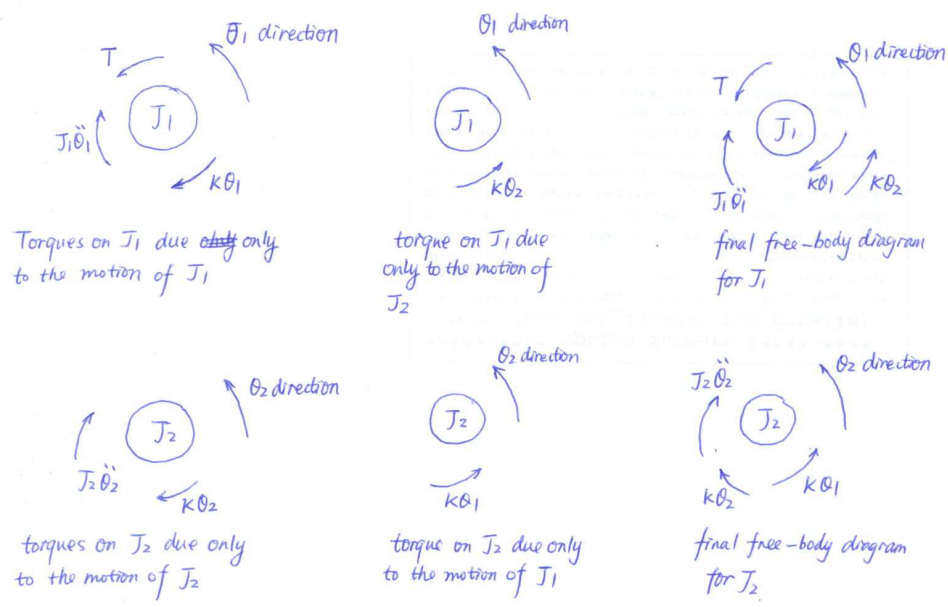 θ̈1 direction
T
J1
J1θ̈1
Kθ1
Torques on J1 due only only
to the motion of J1
θ1 direction
J1
Kθ2
torque on J1 due
only to the motion of
J2
θ1 direction
T
J1
J1θ̈1
Kθ1
Kθ2
final free-body diagram
for J1
θ2 direction
J2
J2θ̈2
Kθ2
torques on J2 due only
to the motion of J2
θ2 direction
J2
Kθ1
torque on J2 due only
to the motion of J1
J2θ̈2
θ2 direction
J2
Kθ2
Kθ1
final free-body diagram
for J2